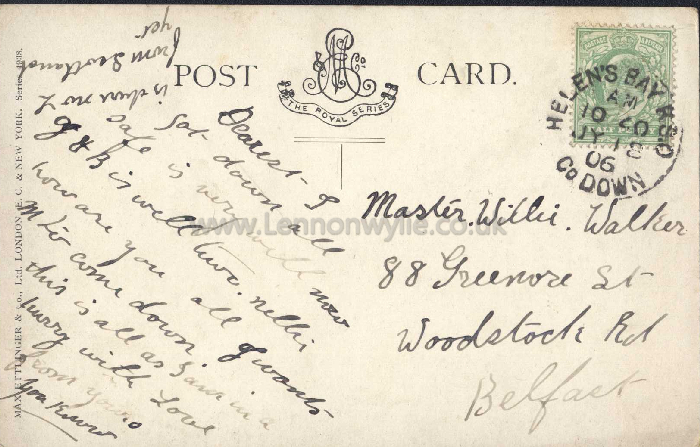 POST CARD.
M E & Co
THE ROYAL SERIES
HELEN'S BAY R.S.O
AM
10 40
JY 18
06
Co DOWN
MAX ETTLINGER & Co., Ltd. LONDON, E. C. & NEW YORK. Series 4838.
www.Lennonwylie.co.uk
Master. Willie. Walker
88 Greenore St
Woodstock Rd
Belfast
Dearest - I
Got down all
safe is very well now
G & B is well two. nellie
how are you all G wants
M to come down.
this is all as I am in a
hurry with Love
from yours
you know
is dear no L
from Scotland
yer